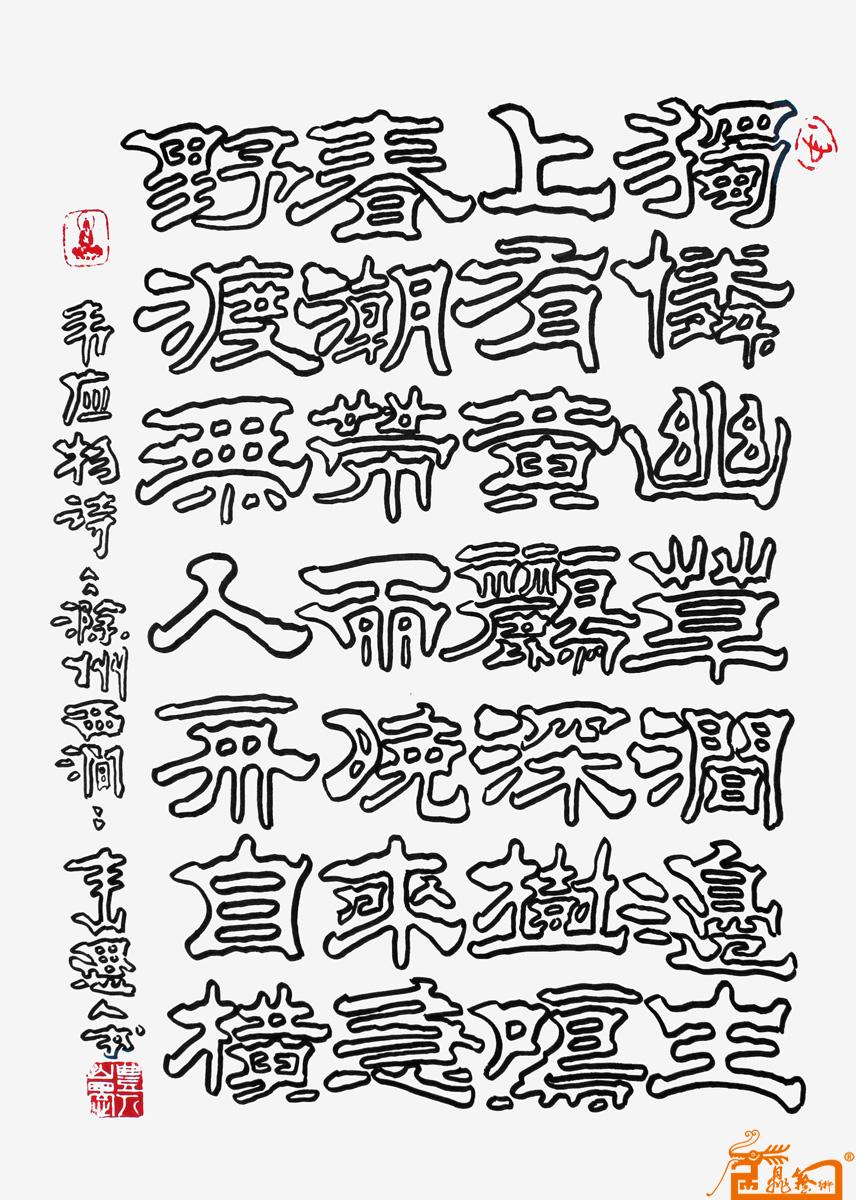 獨憐幽草澗邊生
上有黃鸝深樹鳴
春潮帶雨晚來急
野渡無人舟自橫
韦应物诗：滁州西涧：丰山墨人书